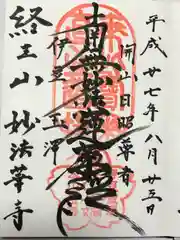 平成廿七年八月廿三日
開山日昭尊者
南無妙法蓮華経
伊豆玉澤
経王山妙法華寺